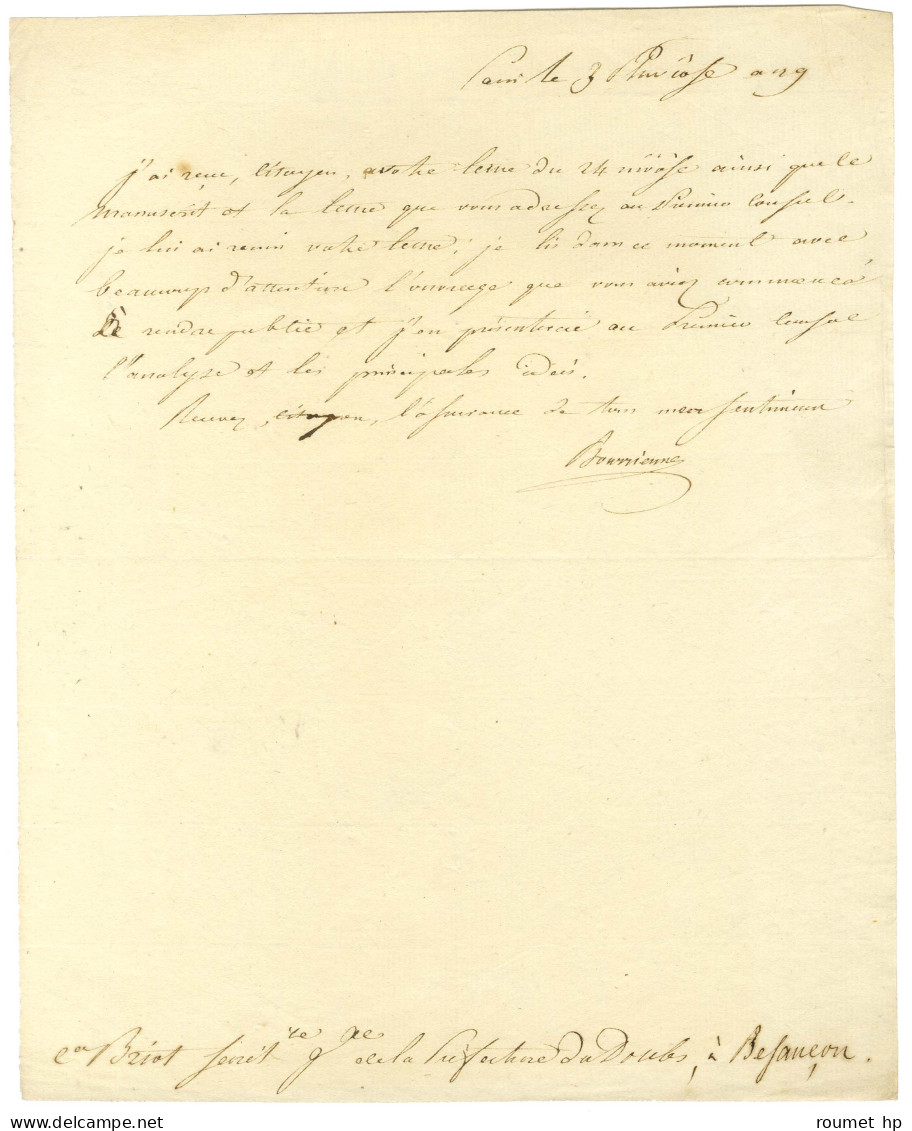 Paris le 3 Pluviôse an 9
j'ai reçu, Citoyen, votre lettre du 24 nivôse ainsi que le
manuscrit et la lettre que vous adressez au Premier Consul.
je lui ai remis votre lettre; je lis dans ce moment avec
beaucoup d'attention l'ouvrage que vous aviez commencé
à rendre public et j'en présenterai au Premier Consul
l'analyse et les principales idées.
Recevez, citoyen, l'assurance de tous mes sentimens
Bourrienne
Cen Briot secrétre gle de la Préfecture du Doubs, à Besançon.
roumet hp